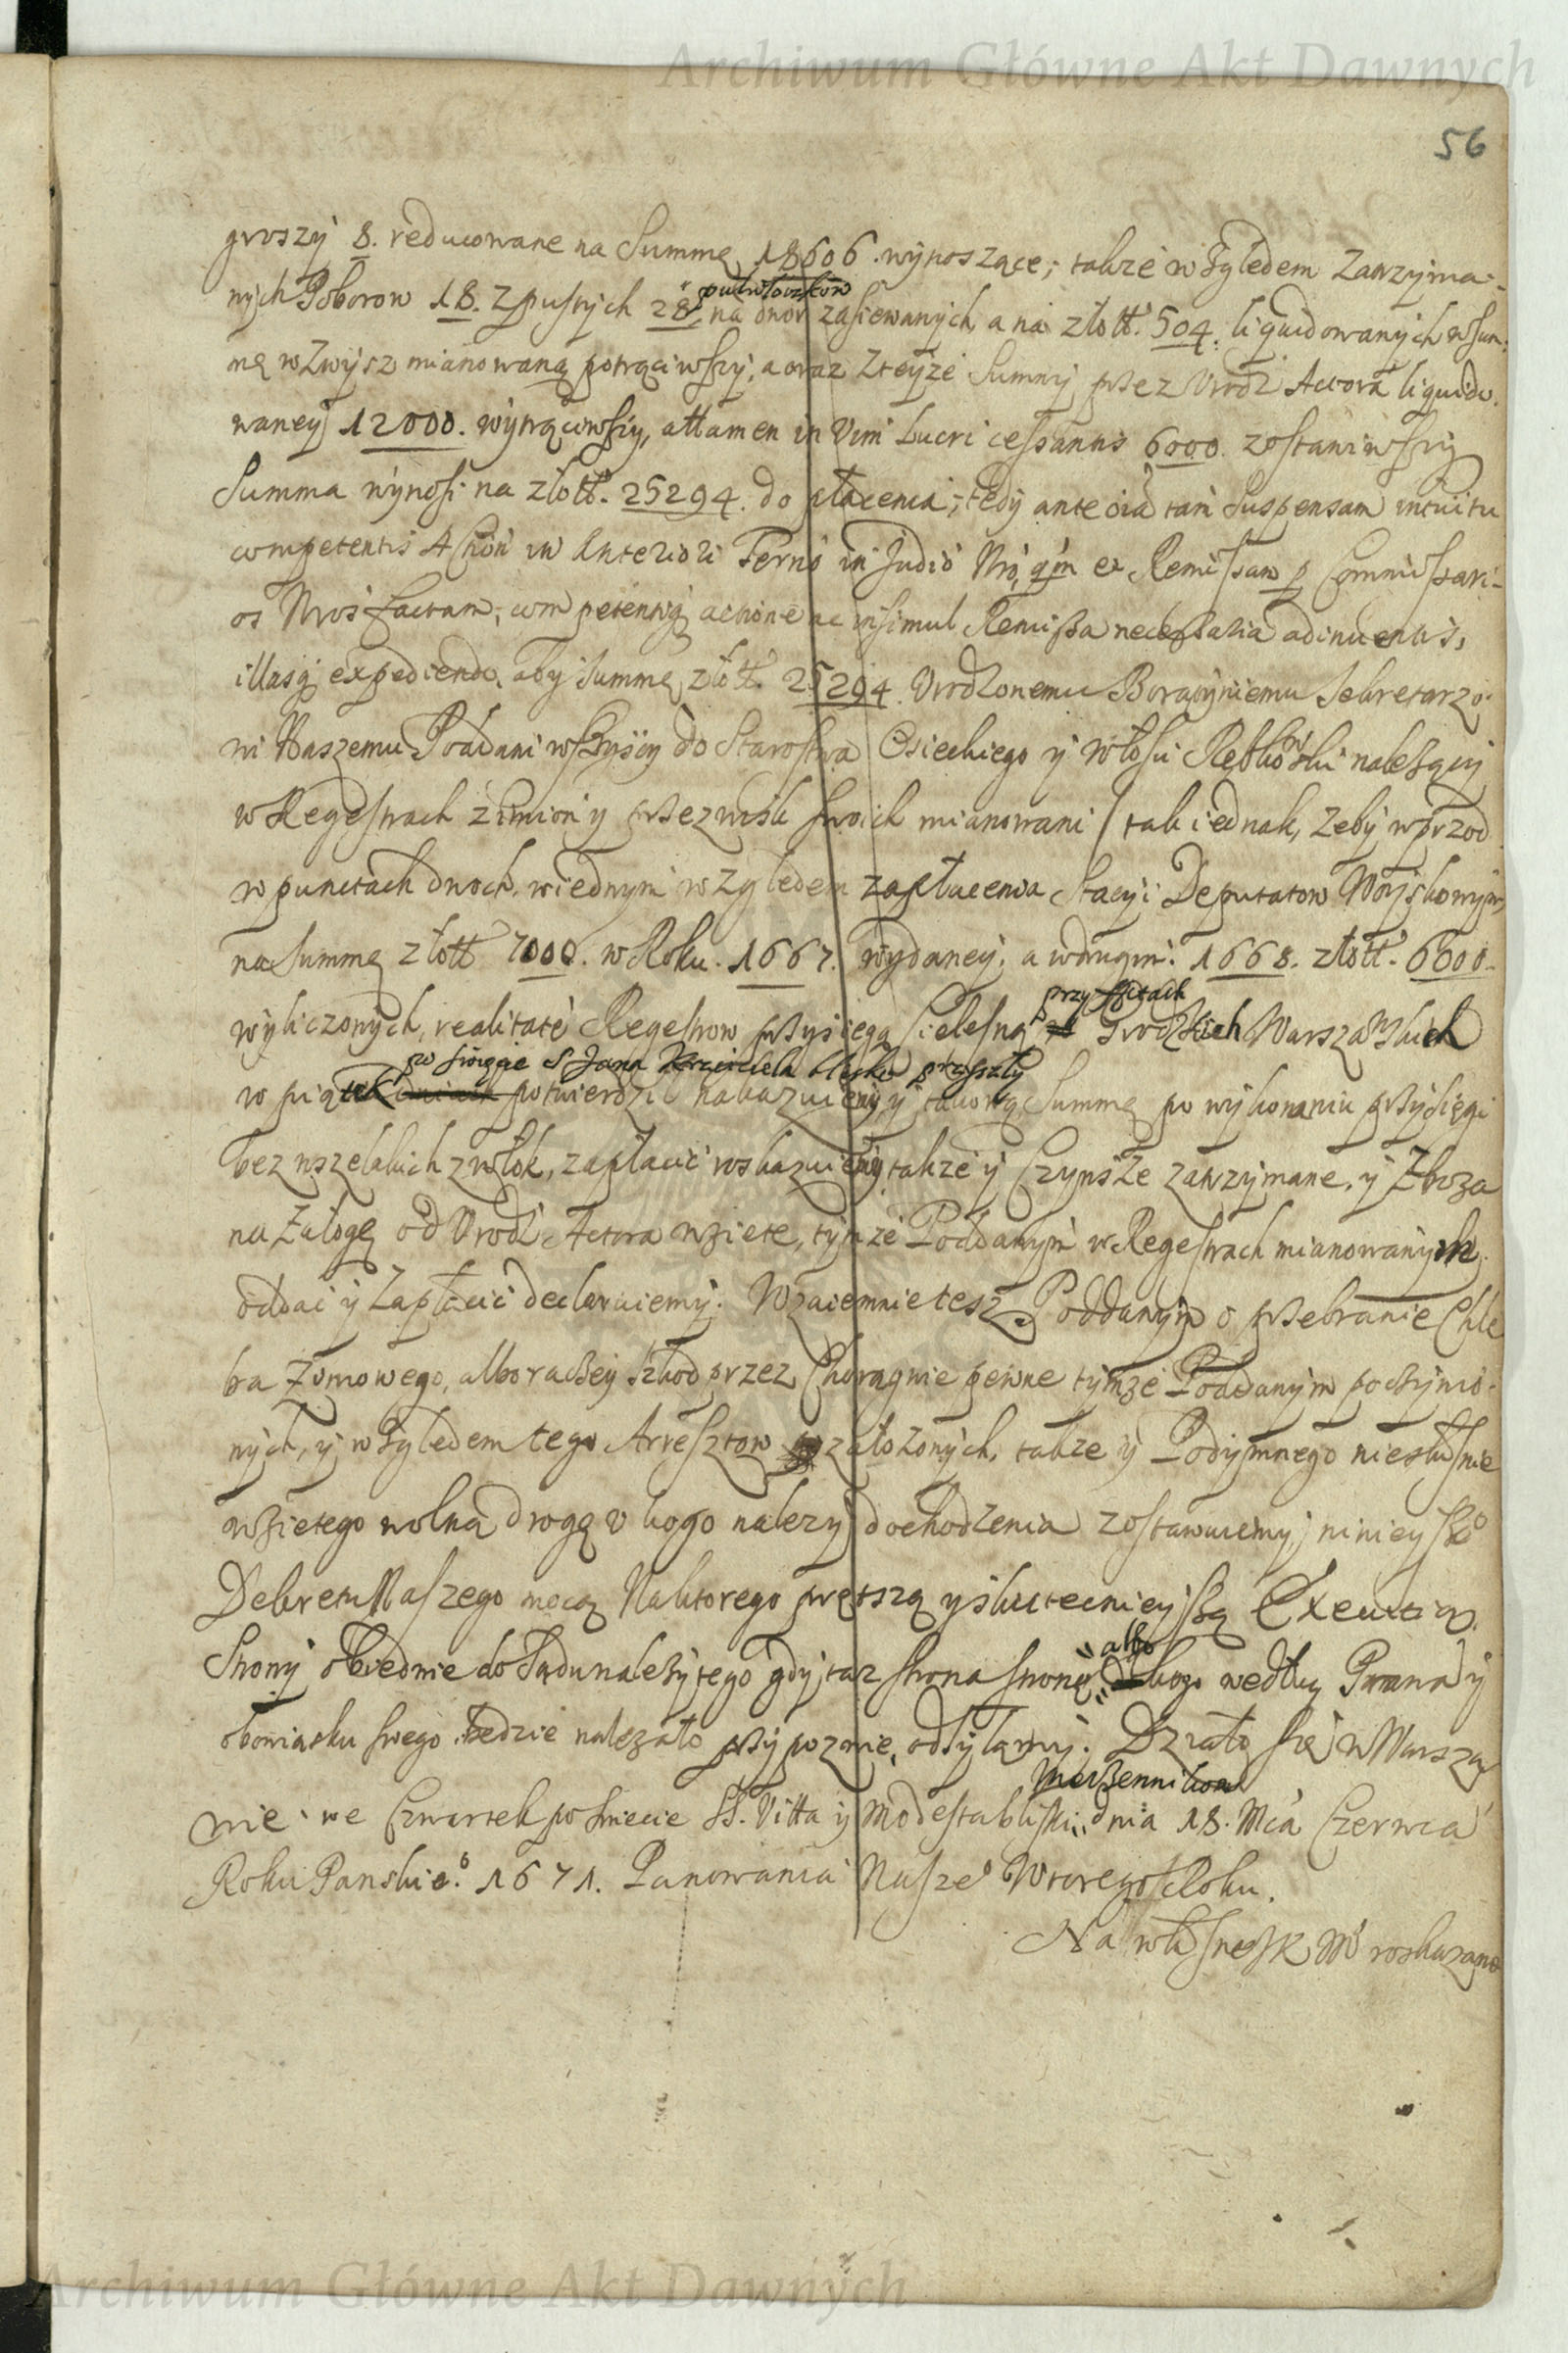 Archiwum Główne Akt Dawnych
56
groszy 8. reducowane na Summę 18606. wynoszące; także względem Zatrzyma-
nych Poborow 18. z pustych 28 pułwłoczkow na dwor zasiewanych a na złott. 504. liquidowanych w Sum-
mę wzwysz mianowaną potrąciwszy, a oraz z teyże Summy przez Urodz Actora liquido-
waney 12000. wytrąciwszy, attamen in Vim Lucri cessantis 6000. zostawiwszy
Summa wynosi na złott. 25294. do płacenia; tedy suspensam intuitu
competentis in Anteriori in Judio ex Remissam p Commissari-
os Nros factam, competentiq actione ac insimul Remissa necessaria adinventis,
illasq expediendo, aby Summę złott. 25294. Urodzonemu Boratyniemu Sekretarzo-
wi Naszemu Poddani wszyscy do Starostwa Osieckiego y należący
w Regestrach z imion y przezwisk swoich mianowani / tak iednak, żeby wprzod
w punctach dwoch, w iednym względem zapłacenia Stacyi Deputatow Woyskowym
na Summę złott 7000. w Roku. 1667. wydaney; a w drugim: 1668. złott. 6600.
wyliczonych, realitatę Regestrow przysięgą cielesną przy Actach Grodzkich Warszawskich
w piątek po święcie S Jana Krzciciela blisko przyszły potwierdzi nakazuiemy y takową Summę po wykonaniu przysięgi
bez wszelakich zwłok, zapłacić roskazuiemy także y Czynsze zatrzymane, y Zboza
na Załogę od Urodz Actora wzięte, tymże Poddanym w Regestrach mianowanych
oddać y Zapłacić declaruiemy. Wzaiemnie tesz Poddanym o przebranie Chle
ba Zimowego, albo raczey szkod przez Chorągwie pewne tymże Poddanym poczynio-
nych, y względem tego Arresztow założonych, także y Podymnego niesłusznie
wziętego wolną drogę u kogo należy dochodzenia zostawuiemy, ninieyszeo
Dekretu Naszego mocą Na ktorego prętszą y skutecznieyszą Exeucią
Strony obiedwie do Sądu należytego gdy taz strona stronę albo kogo według Prawa y
obowiasku swego będzie należało przypozwie, odsyłamy. Działo się w Warsza
wie we Czwartek po Swięcie SS. Vitta y Modesta bliski Męczennikow dnia 18. Mca Czerwca
Roku Panskieo. 1671. Panowania Naszeo Wtorego Roku.
Na własne JKM roskazanie
Archiwum Główne Akt Dawnych